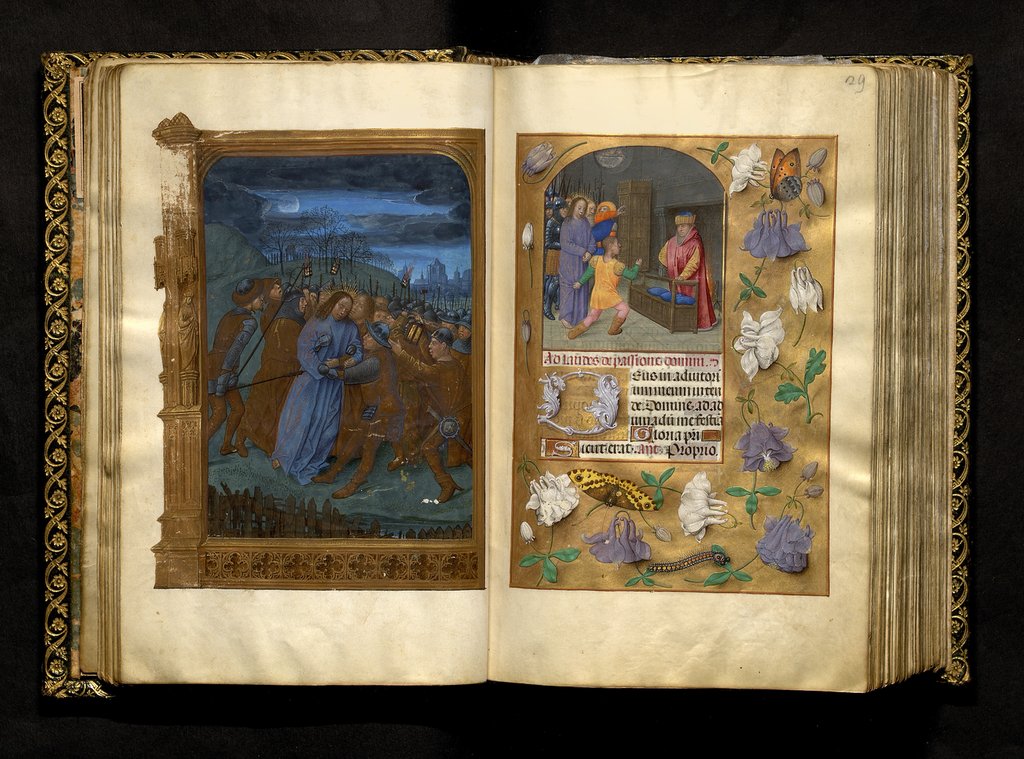 29
Ad laudes de passione domini.
Eus in adiutori
um meum inten
de. Domine ad ad
iuuandū me festīa
Gloria pri
Sicut erat. ant. Proprio